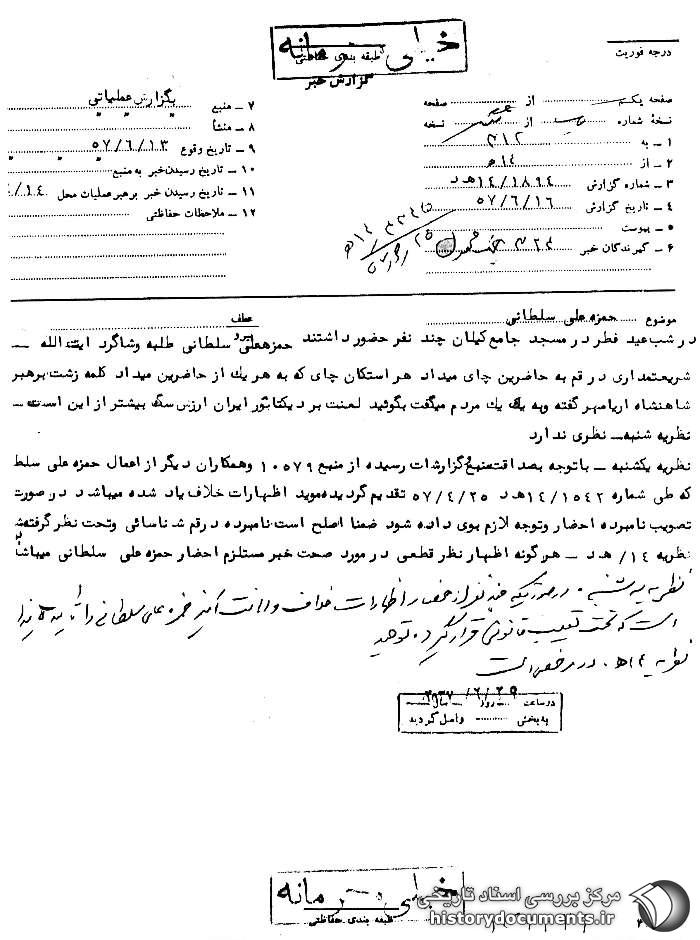 خیلی محرمانه
طبقه بندی حفاظتی
گزارش خبر
درجه فوریت
صفحه یکم از صفحه
نسخهٔ شماره از نسخه
۱ ـ به ۳۱۲
۲ ـ از ۱۴ ه
۳ ـ شماره گزارش ۱۴/۱۸۹۴ هـ د
۴ ـ تاریخ گزارش ۵۷/۶/۱۶
۵ ـ پیوست
۶ ـ گیرندگان خبر
۷ ـ منبع گزارش عملیاتی
۸ ـ منشأ
۹ ـ تاریخ وقوع ۵۷/۶/۱۳
۱۰ ـ تاریخ رسیدن خبر به منبع
۱۱ ـ تاریخ رسیدن خبر برهبر عملیات محل
۱۲ ـ ملاحظات حفاظتی
موضوع حمزه علی سلطانی
عطف پیرو
در شب عید فطر در مسجد جامع کیلان چند نفر حضور داشتند حمزه علی سلطانی طلبه و شاگرد ایت الله ــ
شریعتمداری در قم به حاضرین چای میداد هر استکان چای که به هر یک از حاضرین میداد کلمه زشت برهبر
شاهنشاه اریامهر گفته و به یک یک مردم میگفت بگوئید لعنت بر دیکتاتور ایران ارزش سگ بیشتر از این است ــ
نظریه شنبه ــ نظری ندارد
نظریه یکشنبه ــ با توجه بصداقت منبع و گزارشات رسیده از منبع ۱۰۵۷۹ و همکاران دیگر از اعمال حمزه علی سلط
که طی شماره ۱۴/۱۵۴۲ هـ د ۵۷/۴/۲۵ تقدیم گردیده موید اظهارات خلاف یاد شده میباشد در صورت
تصویب نامبرده احضار و توجه لازم بوی داده شود ضمنا اصلح است نامبرده در قم شناسائی و تحت نظر گرفته ش
نظریه ۱۴/ هـ د ــ هر گونه اظهار نظر قطعی در مورد صحت خبر مستلزم احضار حمزه علی سلطانی میباشد
نظریه سه شنبه ۰ در صورتیکه چند نفر از حضار اظهارات خلاف و اهانت آمیز حمزه علی سلطانی را تائید نمایند
است که تحت تعقیب قانونی قرار گیرد
نظریه ۱۴ ه ۰
۲۵۳۷/۶/۲۹
در ساعت روز سال
به بخش واصل گردید
خیلی محرمانه
طبقه بندی حفاظتی
مرکز بررسی اسناد تاریخی
historydocuments.ir